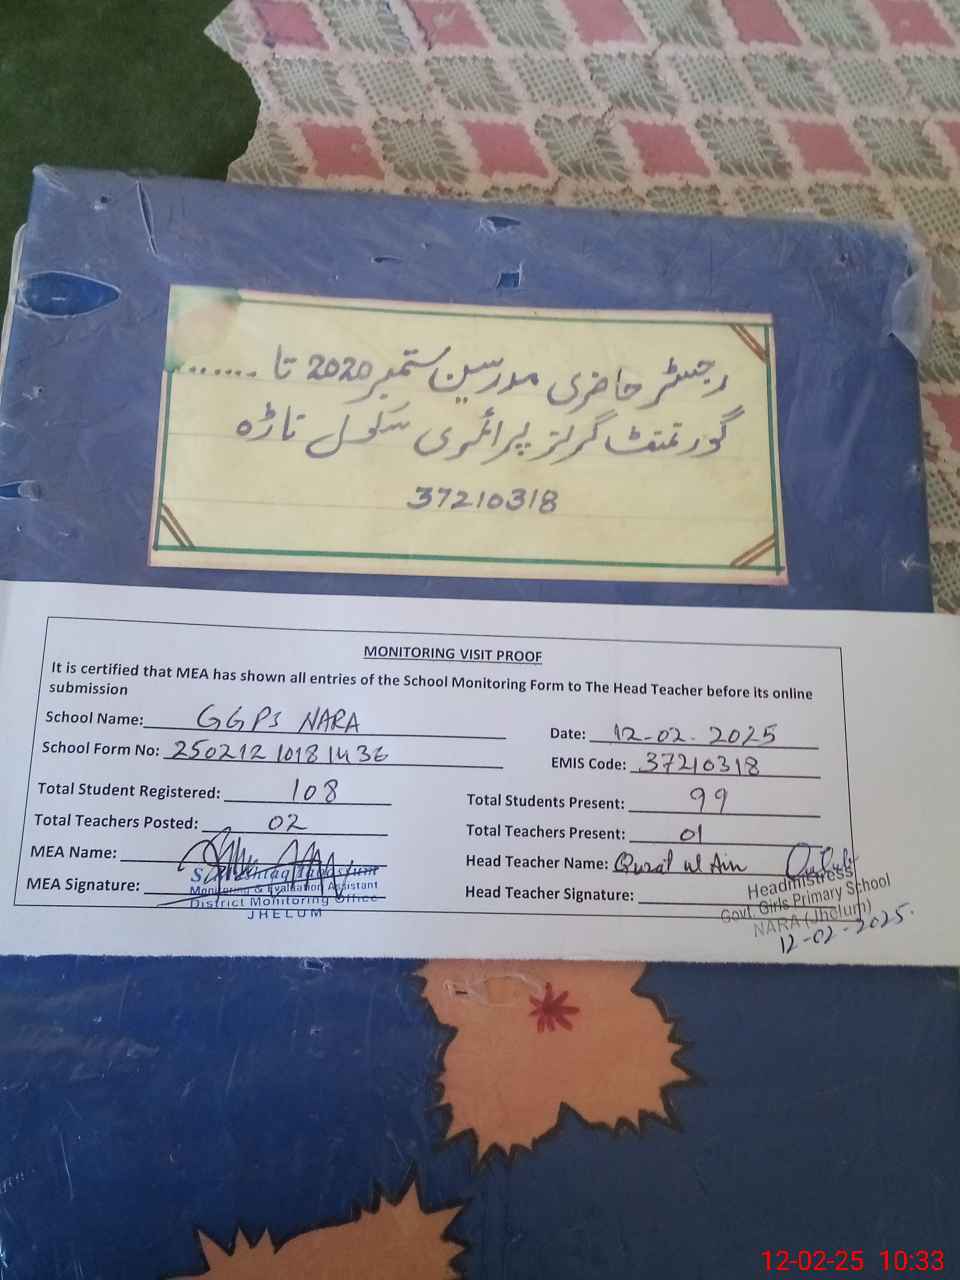 رجسٹر حاضری مدرسین ستمبر 2020 تا .......
گورنمنٹ گرلز پرائمری سکول ناڑہ
37210318
MONITORING VISIT PROOF
It is certified that MEA has shown all entries of the School Monitoring Form to The Head Teacher before its online
submission
School Name: GGPS NARA
Date: 12-02-2025
School Form No: 250212 1018 1436
EMIS Code: 37210318
Total Student Registered: 108
Total Students Present: 99
Total Teachers Posted: 02
Total Teachers Present: 01
MEA Name:
Head Teacher Name: Qurat ul Ain
MEA Signature:
Monitoring & Evaluation Assistant
District Monitoring Office
JHELUM
Head Teacher Signature:
Headmistress
Govt. Girls Primary School
NARA (Jhelum)
12-02-2025.
12-02-25 10:33